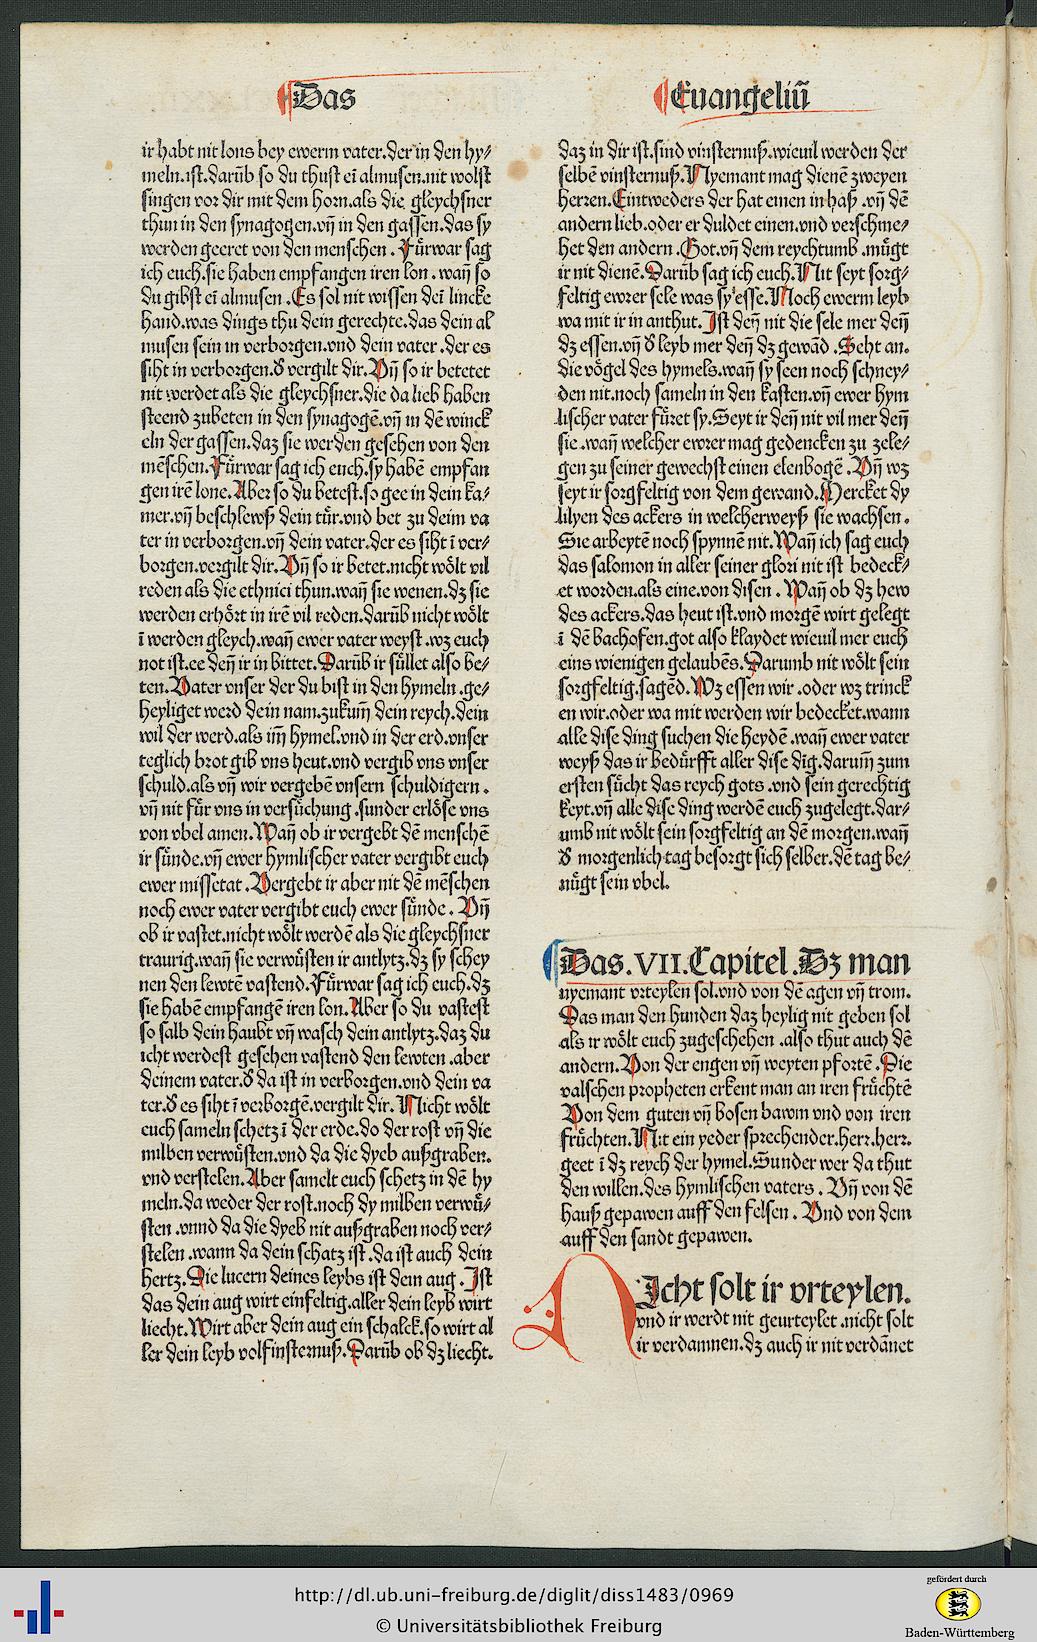 Das
Euangeliū
ir habt nit lons bey ewerm vater.der in den hy⸗
meln.ist.darūb so du thust eī almusen.nit wolst
singen vor dir mit dem horn.als die gleychsner
thun in den synagogen.vñ in den gassen.das sy
werden geeret von den menschen. Fürwar sag
ich euch.sie haben empfangen iren lon.wañ so
du gibst eī almusen.Es sol nit wissen deī lincke
hand.was dings thu dein gerechte.das dein al
musen sein in verborgen.vnd dein vater.der es
siht in verborgen.d̕ vergilt dir.Vñ so ir betetet
nit werdet als die gleychsner.die da lieb haben
steend zubeten in den synagogē.vñ in dē winck
eln der gassen.daz sie werden gesehen von den
mēschen.Fürwar sag ich euch.sy habē empfan
gen irē lone.Aber so du betest.so gee in dein ka⸗
mer.vñ beschlewß dein tür.vnd bet zu deim va
ter in verborgen.vñ dein vater.der es siht ī ver⸗
borgen.vergilt dir.Vñ so ir betet.nicht wölt vil
reden als die ethnici thun.wañ sie wenen.dz sie
werden erhört in irē vil reden.darūb nicht wölt
ī werden gleych.wañ ewer vater weyst.wz euch
not ist.ee deñ ir in bittet.Darūb ir süllet also be⸗
ten.Vater vnser der du bist in den hymeln.ge⸗
heyliget werd dein nam.zukum̄ dein reych.dein
wil der werd.als im̄ hymel.vnd in der erd.vnser
teglich brot gib vns heut.vnd vergib vns vnser
schuld.als vñ wir vergebē vnsern schuldigern.
vñ nit für vns in versüchung.sunder erlöse vns
von vbel amen.Wañ ob ir vergebt dē menschē
ir sünde.vñ ewer hymlischer vater vergibt euch
ewer missetat.Vergebt ir aber nit dē mēschen
noch ewer vater vergibt euch ewer sünde. Vñ
ob ir vastet.nicht wölt werdē als die gleychsner
traurig.wañ sie verwüsten ir antlytz.dz sy schey
nen den lewtē vastend.Fürwar sag ich euch.dz
sie habē empfangē iren lon.Aber so du vastest
so salb dein haubt vñ wasch dein antlytz.daz du
icht werdest gesehen vastend den lewten.aber
deinem vater.d̕ da ist in verborgen.vnd dein va
ter.d̕ es siht ī verborgē.vergilt dir. Nicht wölt
euch sameln schetz ī der erde.do der rost vñ die
milben verwüsten.vnd da die dyeb außgraben.
vnd verstelen.Aber samelt euch schetz in dē hy
meln.da weder der rost.noch dy milben verwü⸗
sten.vnnd da die dyeb nit außgraben noch ver⸗
stelen.wann da dein schatz ist.da ist auch dein
hertz.Die lucern deines leybs ist dein aug. Ist
das dein aug wirt einfeltig.aller dein leyb wirt
liecht.Wirt aber dein aug ein schalck.so wirt al
ler dein leyb volfinsternuß.Darūb ob dz liecht.
daz in dir ist.sind vinsternuß.wieuil werden der
selbē vinsternuß.Nyemant mag dienē zweyen
herren.Eintweders der hat einen in haß.vñ dē
andern lieb.oder er duldet einen.vnd verschme⸗
het den andern.Got.vñ dem reychtumb.mügt
ir nit dienē.Darūb sag ich euch.Nit seyt sorg⸗
feltig ewrer sele was sy esse.Noch ewerm leyb
wa mit ir in anthut.Ist deñ nit die sele mer deñ
dz essen.vñ d̕ leyb mer deñ dz gewād.Seht an.
die vögel des hymels.wañ sy seen noch schney⸗
den nit.noch sameln in den kasten.vñ ewer hym
lischer vater füret sy.Seyt ir deñ nit vil mer deñ
sie.wañ welcher ewrer mag gedencken zu zele⸗
gen zu seiner gewechst einen elenbogē.Vñ wz
seyt ir sorgfeltig von dem gewand.Mercket dy
lilyen des ackers in welcherweyß sie wachsen.
Sie arbeytē noch spynnē nit.Wañ ich sag euch
das salomon in aller seiner glori nit ist bedeck⸗
et worden.als eine.von disen. Wañ ob dz hew
des ackers.das heut ist.vnd morgē wirt gelegt
ī dē bachofen.got also klaydet wieuil mer euch
eins wienigen gelaubēs.Darumb nit wölt sein
sorgfeltig.sagēd.Wz essen wir.oder wz trinck
en wir.oder wa mit werden wir bedecket.wann
alle dise ding suchen die heydē.wañ ewer vater
weyß das ir bedürfft aller dise dīg.darum̄ zum
ersten sücht das reych gots.vnd sein gerechtig
keyt.vñ alle dise ding werdē euch zugelegt.dar⸗
umb nit wölt sein sorgfeltig an dē morgen.wañ
d̕ morgenlich tag besorgt sich selber.dē tag be⸗
nügt sein vbel.
Das.VII.Capitel.Dz man
nyemant vrteylen sol.vnd von dē agen vñ trom.
Das man den hunden daz heylig nit geben sol
als ir wölt euch zugeschehen.also thut auch dē
andern.Von der engen vñ weyten pfortē.Die
valschen propheten erkent man an iren früchtē
Von dem guten vñ bosen bawm vnd von iren
früchten.Nit ein yeder sprechender.herr.herr.
geet ī dz reych der hymel.Sunder wer da thut
den willen.des hymlischen vaters. Vñ von dē
hauß gepawen auff den felsen. Vnd von dem
auff den sandt gepawen.
NIcht solt ir vrteylen.
vnd ir werdt nit geurteylet.nicht solt
ir verdamnen.dz auch ir nit verdāmet
http://dl.ub.uni-freiburg.de/diglit/diss1483/0969
© Universitätsbibliothek Freiburg
gefördert durch
Baden-Württemberg